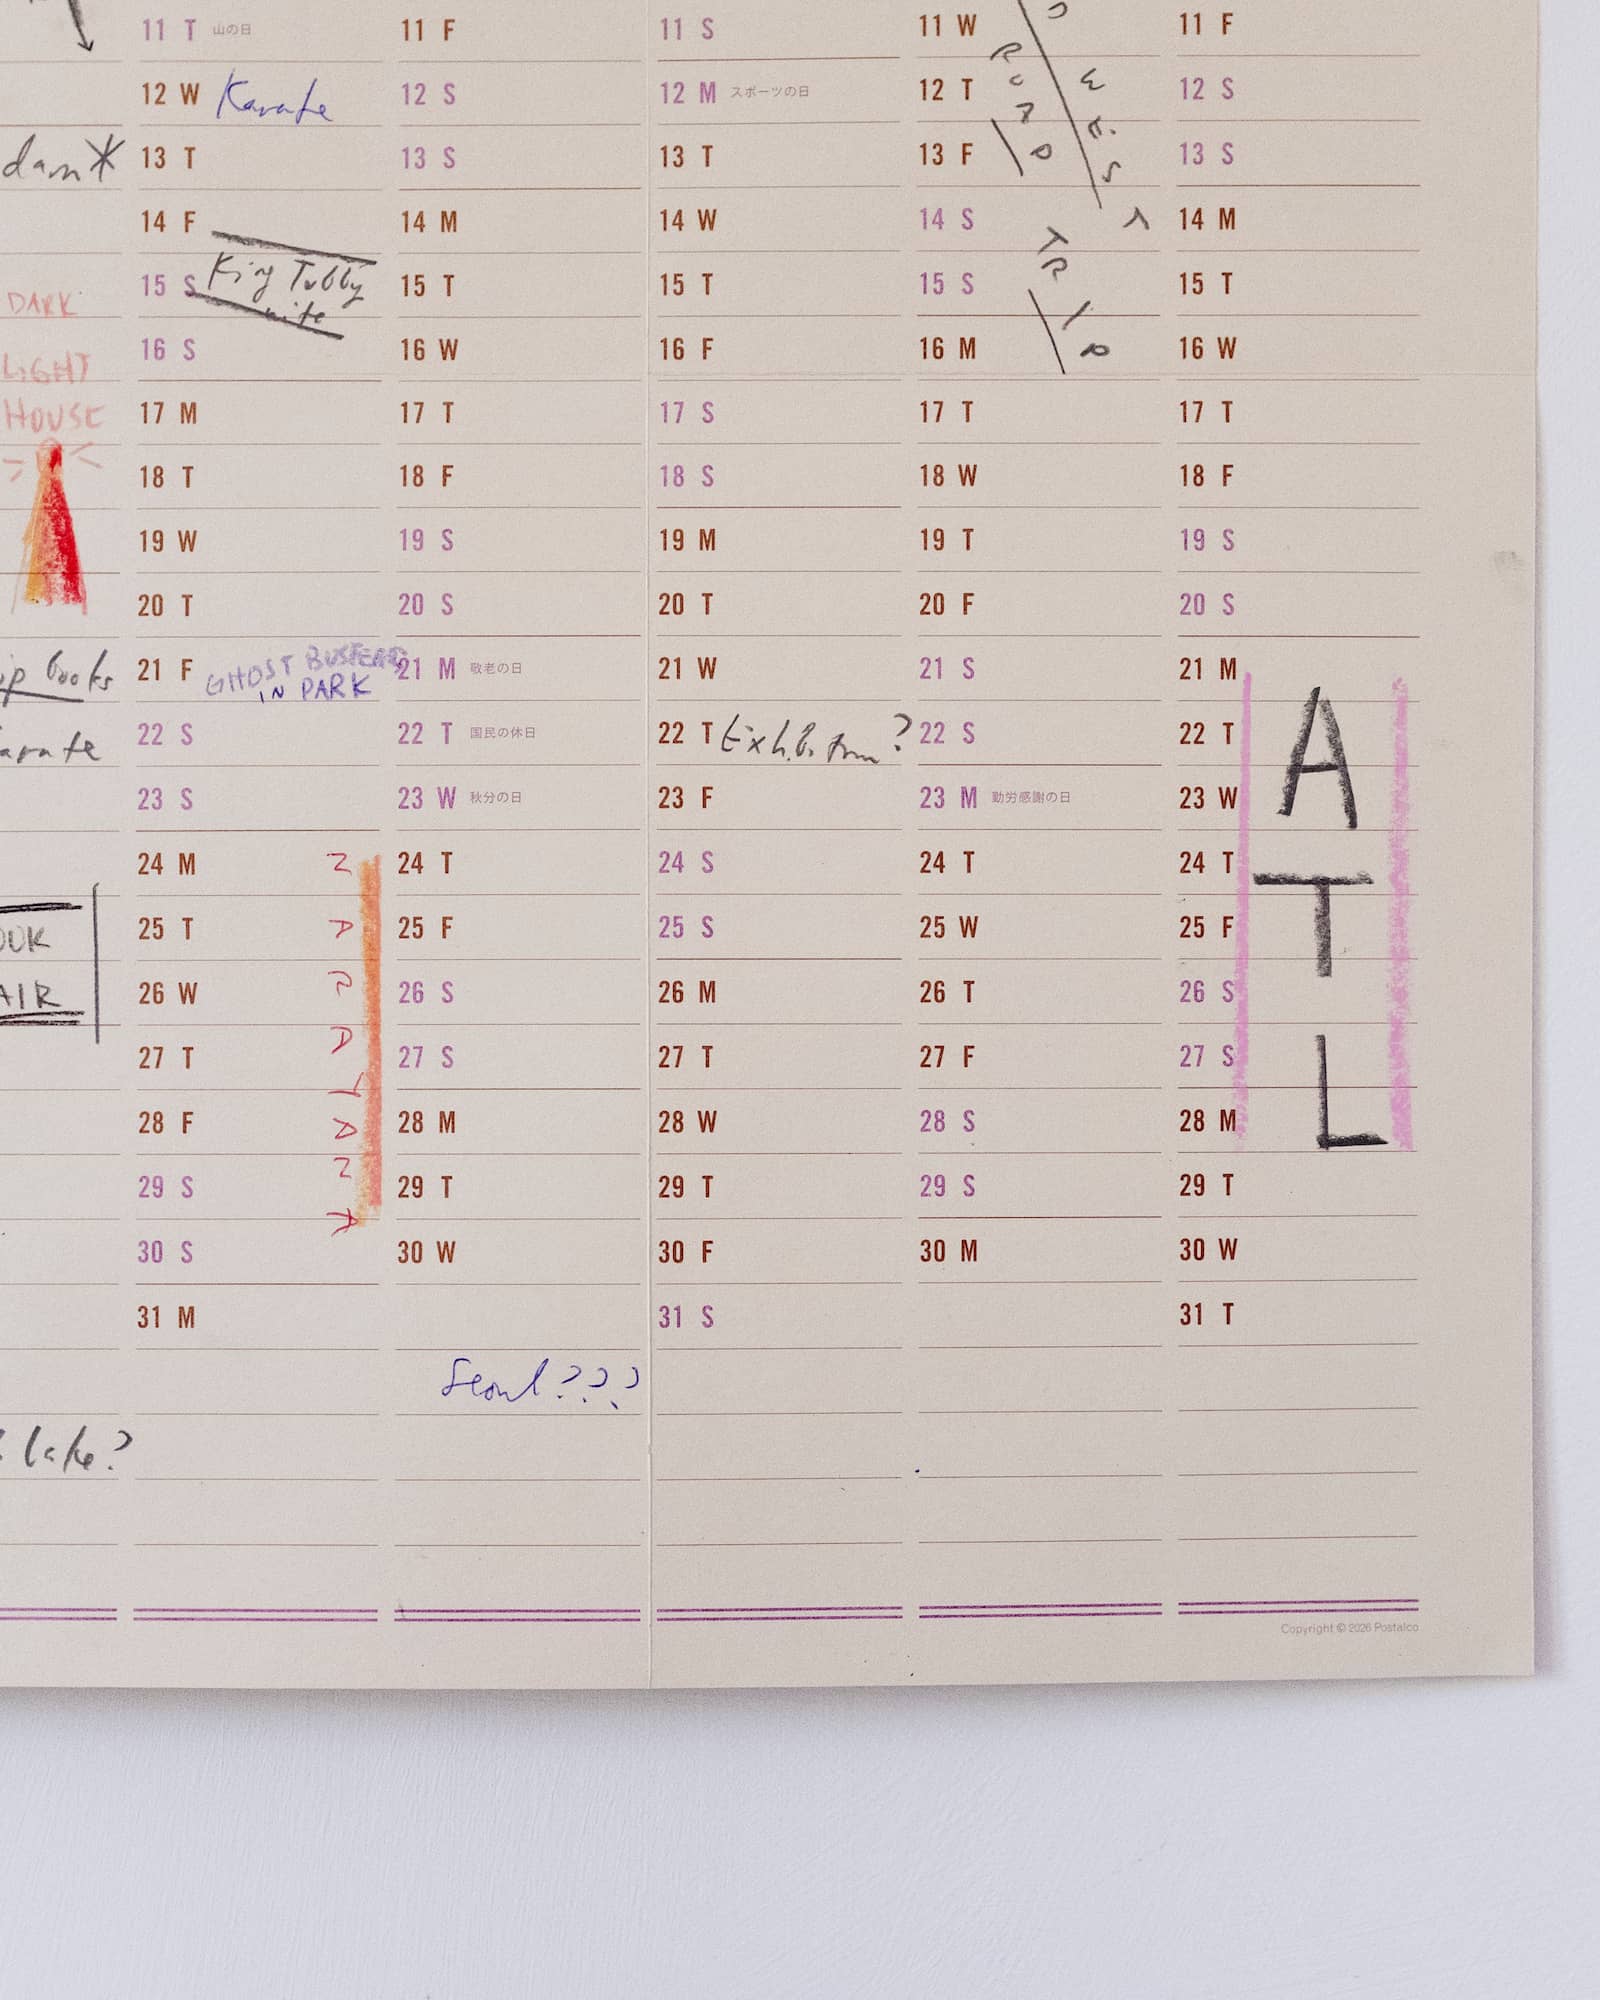 dam*
DARK
LIGHT
HOUSE
books
lake?
11 T 山の日
12 W Karate
13 T
14 F
15 S King Tubby
nite
16 S
17 M
18 T
19 W
20 T
21 F GHOST BUSTERS
IN PARK
22 S
23 S
24 M
25 T
26 W
27 T
28 F
29 S
30 S
31 M
11 F
12 S
13 S
14 M
15 T
16 W
17 T
18 F
19 S
20 S
21 M 敬老の日
22 T 国民の休日
23 W 秋分の日
24 T
25 F
26 S
27 S
28 M
29 T
30 W
Seoul???
11 S
12 M スポーツの日
13 T
14 W
15 T
16 F
17 S
18 S
19 M
20 T
21 W
22 T Exhibition?
23 F
24 S
25 S
26 M
27 T
28 W
29 T
30 F
31 S
11 W
12 T
13 F
14 S
15 S
16 M
17 T
18 W
19 T
20 F
21 S
22 S
23 M 勤労感謝の日
24 T
25 W
26 T
27 F
28 S
29 S
30 M
ROAD
TRIP
WEST
11 F
12 S
13 S
14 M
15 T
16 W
17 T
18 F
19 S
20 S
21 M
22 T
23 W
24 T
25 F
26 S
27 S
28 M
29 T
30 W
31 T
ATL
Copyright © 2026 Postalco